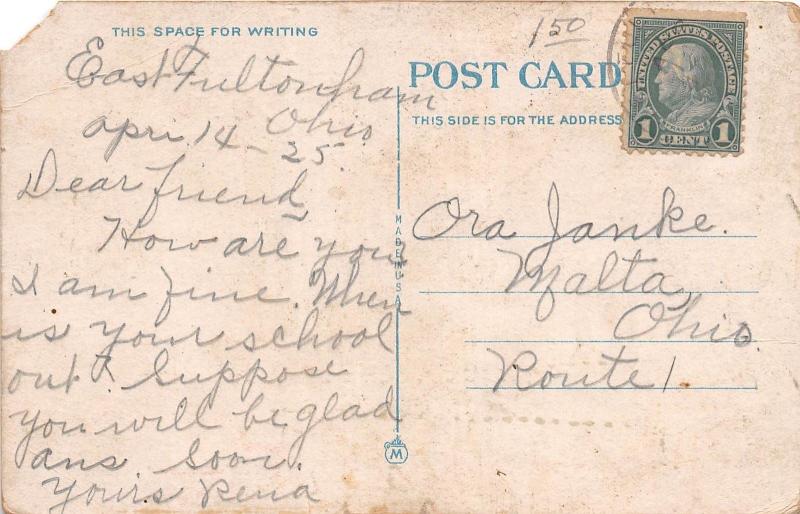 THIS SPACE FOR WRITING
East Fultonham
Ohio
Apri 14 - 25.
Dear friend,
How are you
I am fine. When
is your school
out? Suppose
you will be glad
ans. soon.
Yours Rena
MADE IN USA
M
1 50
POST CARD
THIS SIDE IS FOR THE ADDRESS
UNITED STATES POSTAGE
FRANKLIN
1 CENT 1
Ora Janke.
Malta,
Ohio.
Route 1